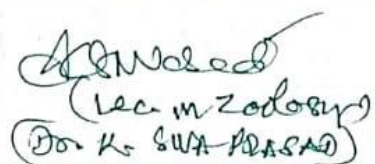 (Lec. in Zoology)
(Dr. K. SIVA PRASAD)